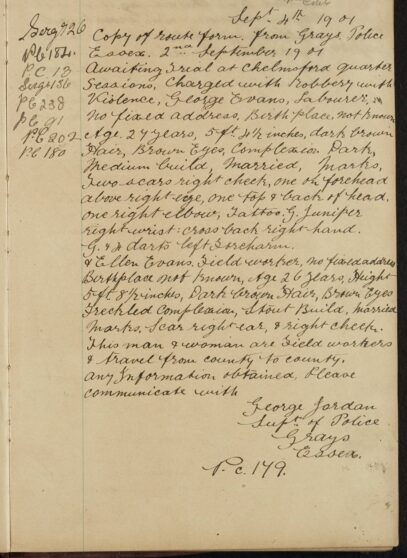 Sept 4th 1901
Sergt 26
P.C 184
P.C. 13
Sergt 136
P.C 238
P.C 91
P.C 202
P.C 180
Copy of route form. from Grays, Police
Essex. 2nd September 1901
Awaiting Trial at Chelmsford quarter
Sessions, Charged with Robbery with
Violence, George Evans, Labourer,
No fixed address, Birth Place, not known
Age 27 years, 5 ft 4½ inches, dark brown
Hair, Brown Eyes, Complexion Dark,
Medium build, Married, Marks,
Two scars right cheek, one on forehead
above right eye, one top & back of head.
one right elbow, Tattoo, G. Juniper
right wrist: cross back right hand.
G. & 4 darts left Forearm.
& Ellen Evans. Field worker, no fixed address
Birthplace not Known, Age 26 years, Height
5 ft 8½ inches, Dark brown Hair, Brown Eyes
Freckled Complexion, Stout Build, Married
Marks. Scar right ear, & right cheek.
This man & woman are Field workers
& travel from county to county.
any Information obtained, Please
communicate with
George Jordan
Supt of Police
Grays
Essex.
P.c. 179.